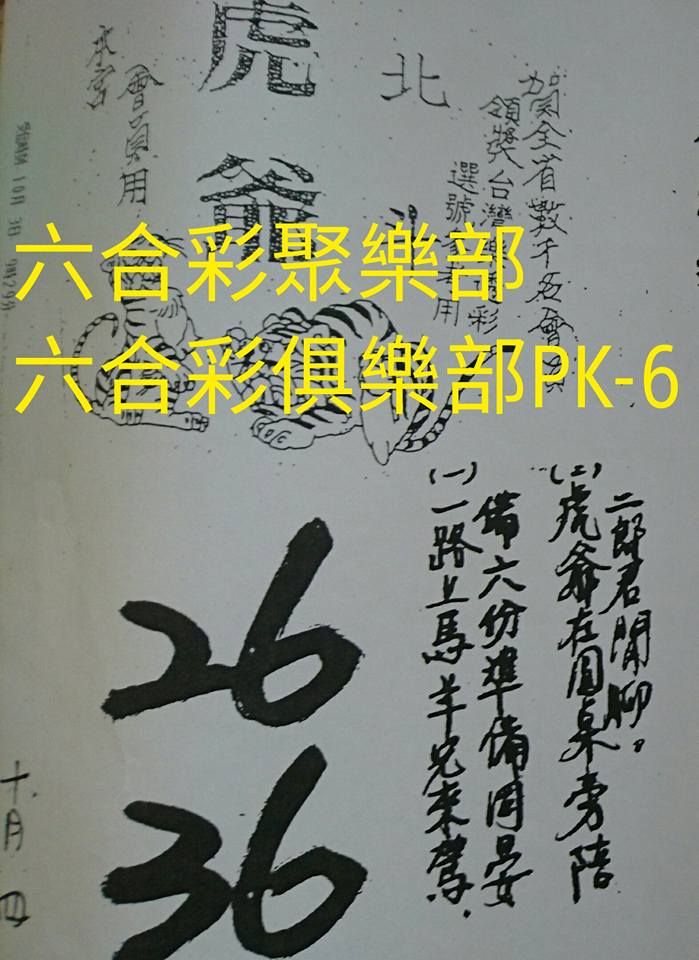 六合彩聚樂部
六合彩俱樂部PK-6
賀全省數千名會員
領獎台灣
彩
選號參考用
北斗
虎爺
會員用
本宮
10月 3日 9時29分
(二)虎爺在圓桌旁陪
二郎君閒聊。
(一)一路上馬羊兄來駕.
備六份準備同晏
26
36
十月四